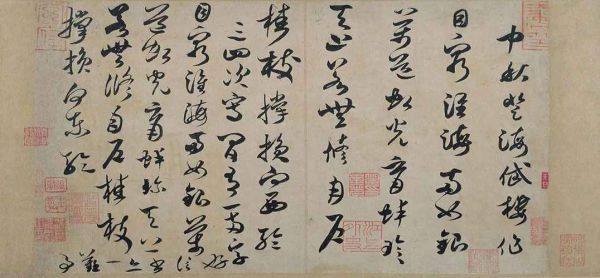 中秋登海岱樓作
目窮淮海兩如銀
萬道虹光育蚌珍
天上若無修月戶
桂枝撐損向西輪
三四次寫間有一兩字好
目窮淮海兩如銀萬
道虹光育蚌珍天上
若無修月戶桂枝
撐損向東輪
信書亦一難事